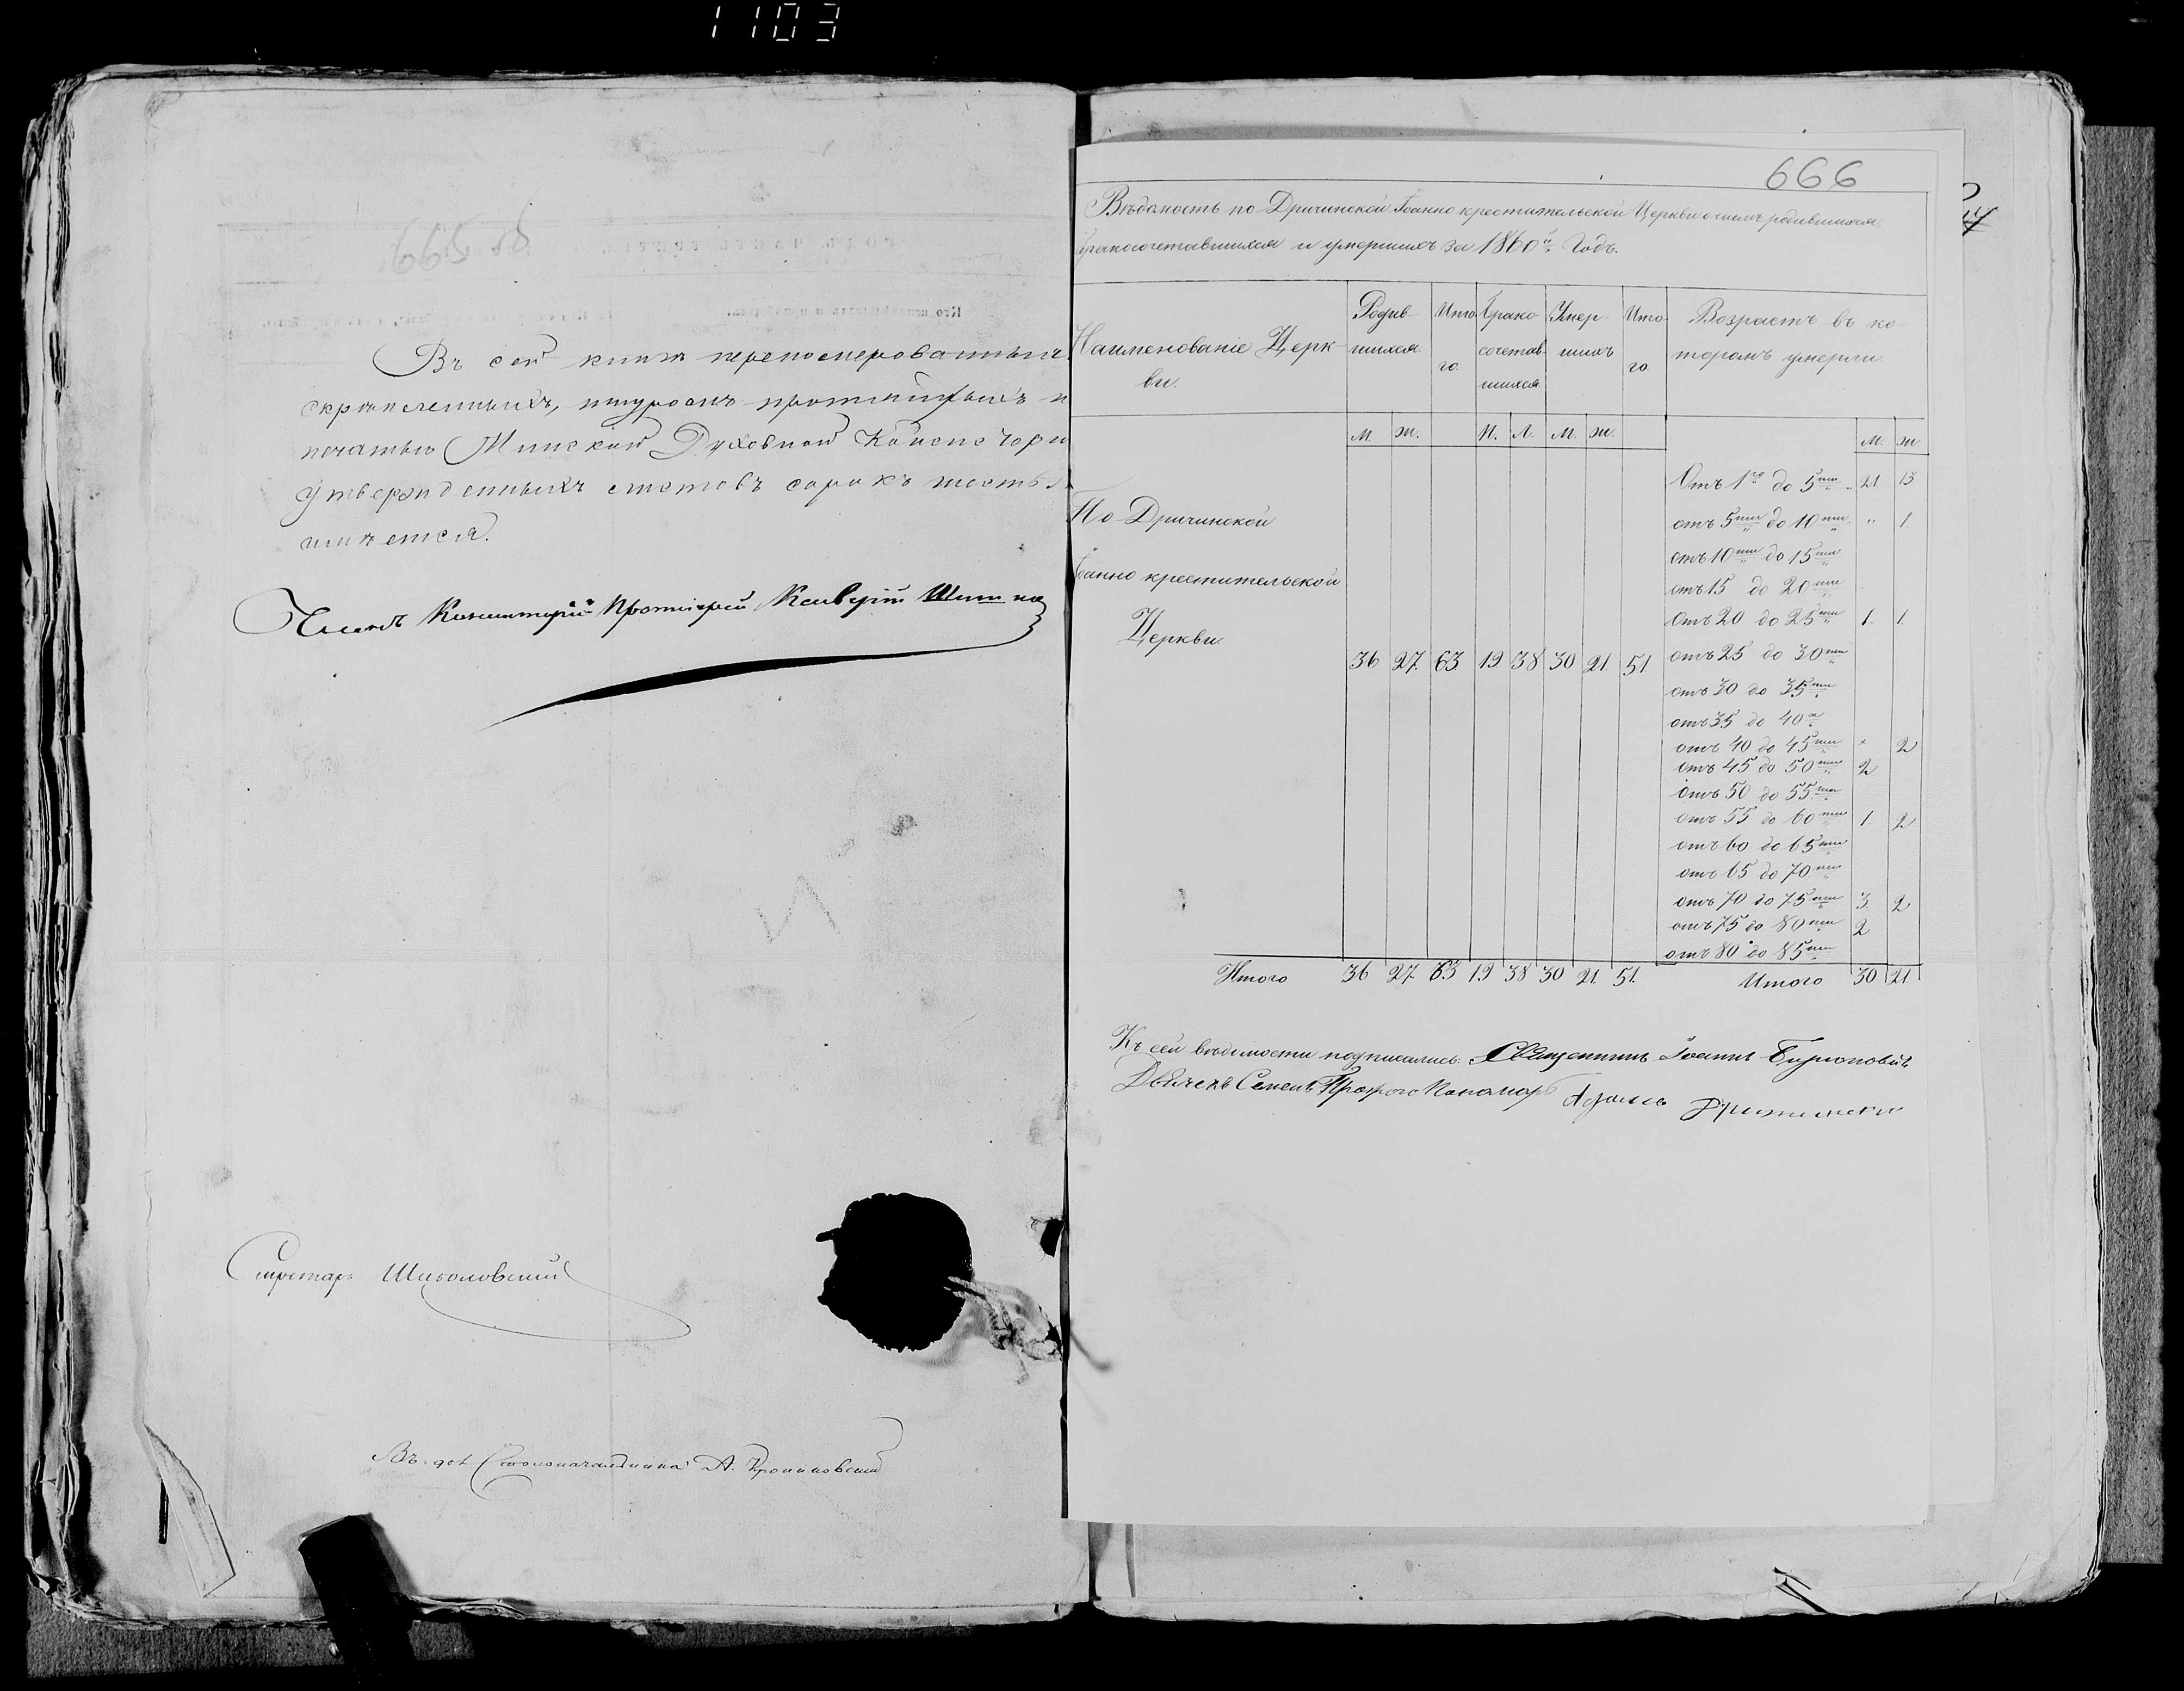 1103
Въ сей книгѣ перенумерованныхъ
скрѣпленныхъ, шнуромъ
печатью Минской Духовной Консисторіи
утвержденныхъ листовъ сорокъ шесть
имѣется.
Членъ Консисторіи Протоіерей
Секретарь
Въ дол Столоначальника А.
666
Вѣдомость по Дричинской Іоанно крестительской Церкви о числѣ родившихся,
бракосочетавшихся и умершихъ за 1860й Годъ.
Наименованіе Церк-
ви.
Родив-
шихся
Ито-
го.
Брако-
сочетав-
шихся
Умер-
шихъ
Ито-
го.
Возрастъ въ ко-
торомъ умерли
М. Ж. П. Л. М. Ж. М. Ж.
По Дричинской
Іоанно крестительской
Церкви.
36 27. 63 19 38 30 21. 51
Отъ 1го до 5ти „ 21 13
отъ 5ти до 10ти „ 1.
отъ 10ти до 15ти
отъ 15 до 20ти
отъ 20 до 25ти 1. 1.
отъ 25 до 30ти
отъ 30 до 35ти
отъ 35 до 40а
отъ 40 до 45ти „ 2
отъ 45 до 50ти 2
отъ 50 до 55ти
отъ 55 до 60ти 1. 2
отъ 60 до 65ти
отъ 65 до 70ти
отъ 70 до 75ти 3. 2
отъ 75 до 80ти 2
отъ 80 до 85ти
Итого 36 27. 63 19 38 30 21. 51. Итого 30 21
Къ сей вѣдомости подписались: Священникъ Іоаннъ
Дьячекъ Семенъ Пономарь